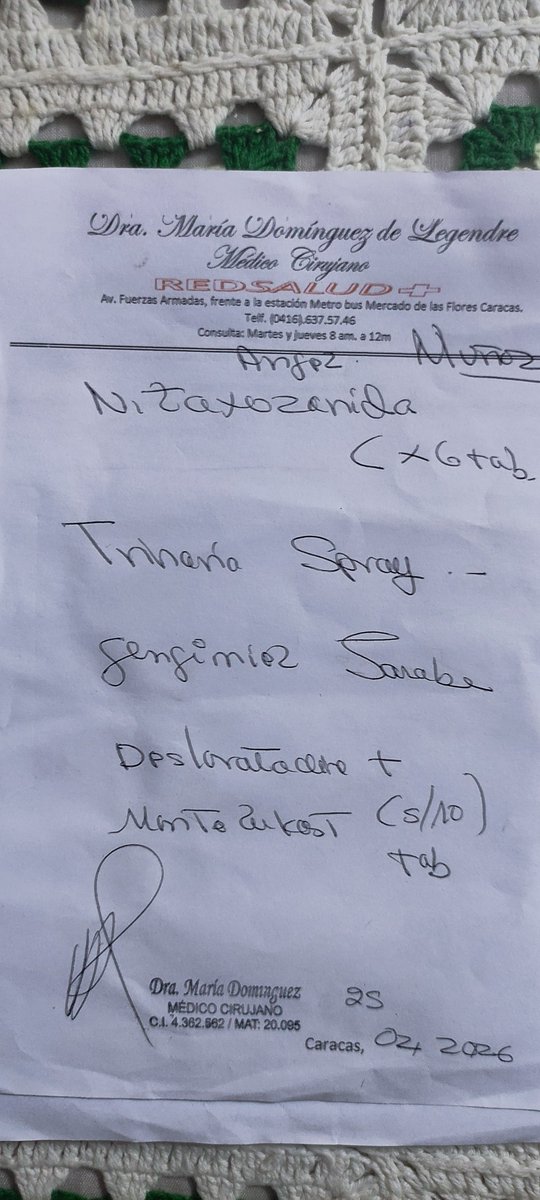 Dra. María Domínguez de Legendre
Médico Cirujano
REDSALUD+
Av. Fuerzas Armadas, frente a la estación Metro bus Mercado de las Flores Caracas.
Telf. (0416).637.57.46
Consulta: Martes y jueves 8 am. a 12m
Angel Muñoz
Nitaxozanida
C x 6 tab.
Spray .-
gengimiel Jarabe
Desloratadine +
Montelukast (5/10)
tab
Dra. María Domínguez
MÉDICO CIRUJANO
C.I. 4.362.662 / MAT: 20.095
25
Caracas, 04 2026